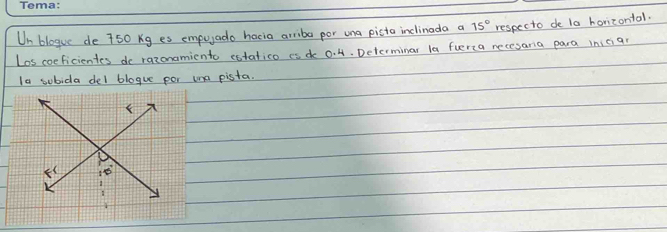 Tema:
Un bloque de 750 Kg es empujado hacia arriba por una pista inclinada a 15° respecto de la horizontal.
Los coeficientes de razonamiento estatico es de 0.4. Determinar la fuerza necesaria para iniciar
la subida del bloque por una pista.
F
Fr